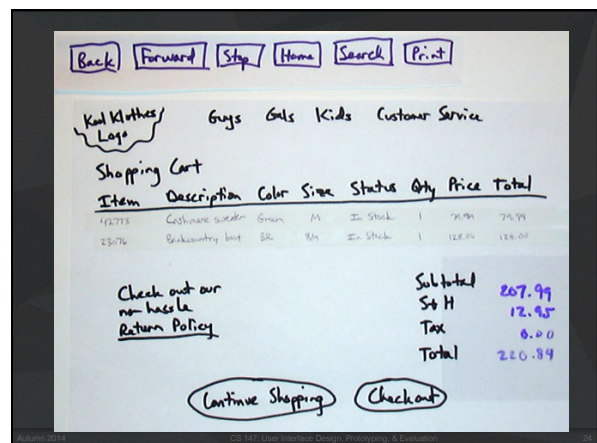 Back Forward Stop Home Search Print
Kool Klothes Guys Gals Kids Customer Service
Logo
Shopping Cart
Item Description Color Size Status Qty Price Total
42773 Cashmere sweater Green M In Stock 1 79.99 79.99
23076 boot BR 8M In Stock 1 128.00 128.00
Check out our Subtotal 207.99
no hassle S+H 12.95
Return Policy Tax 0.00
Total 220.84
Continue Shopping Checkout
Autumn 2014 CS 147: User Interface Design, Prototyping, & Evaluation 24